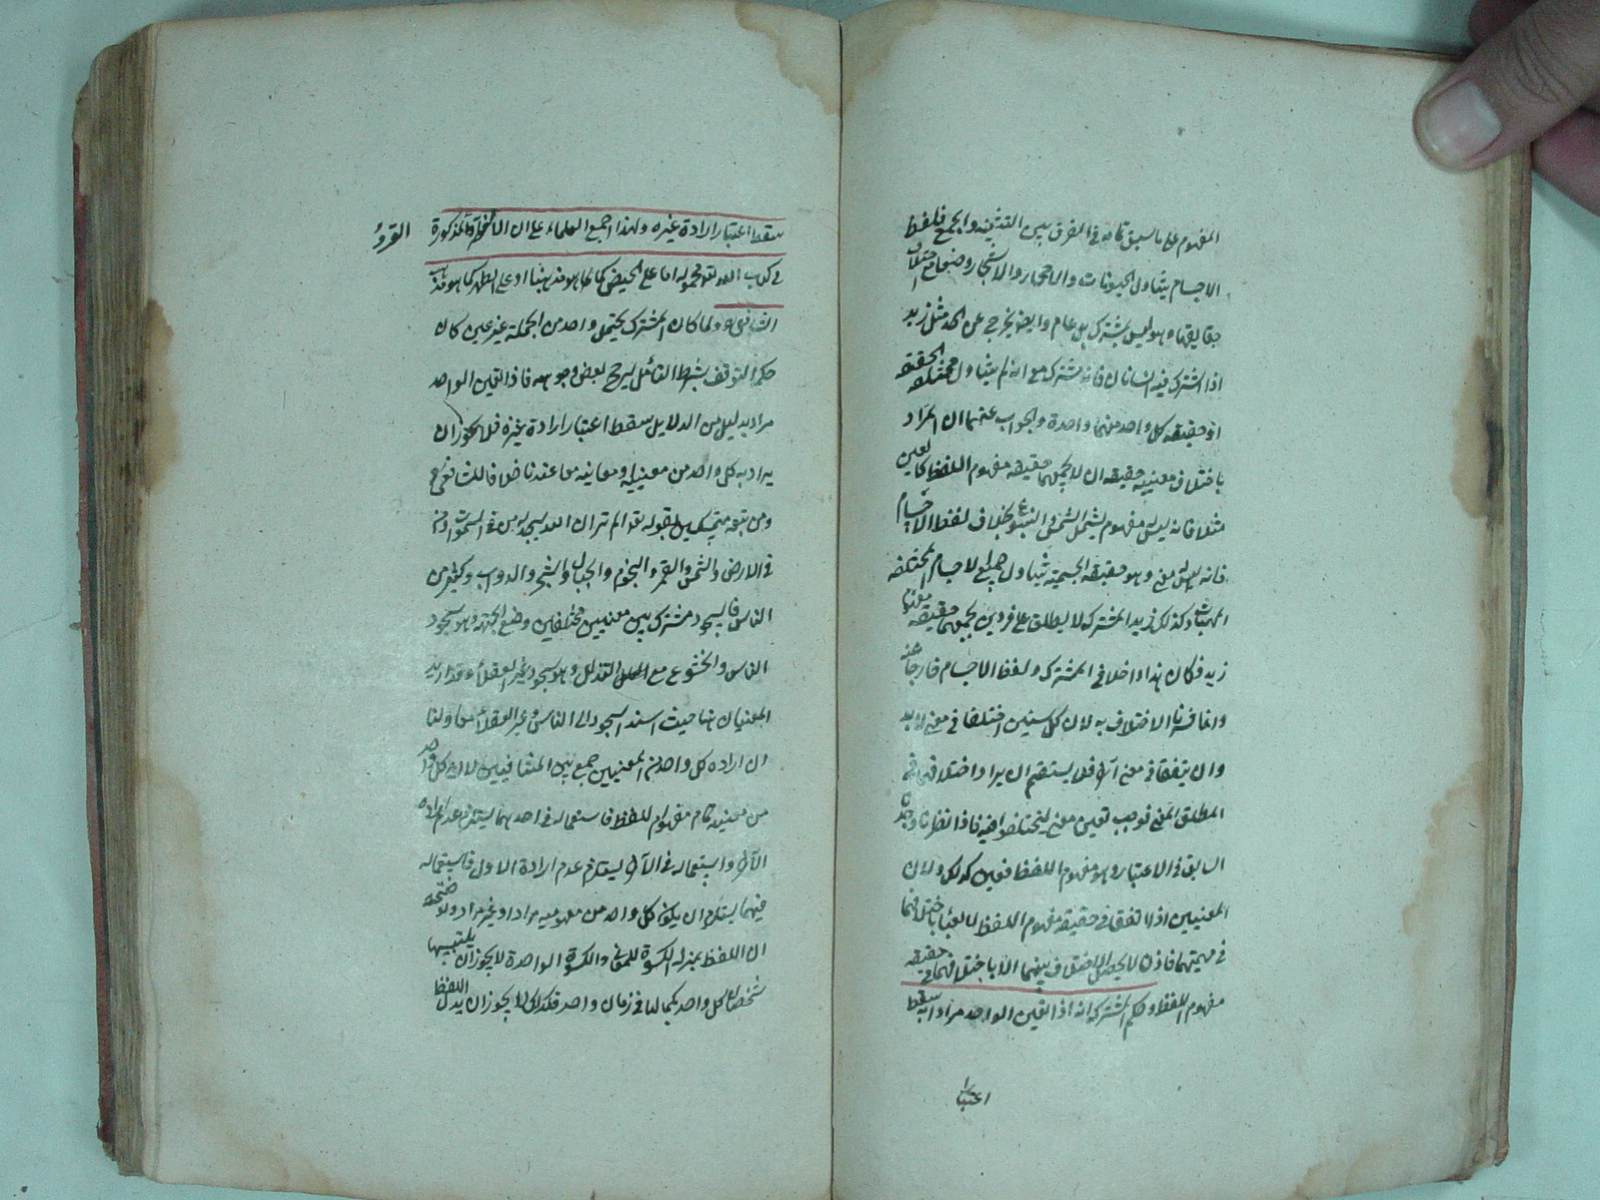 المفهوم على ما سبق تمامه في الفرق بين التثنية والجمع فلفظ
الاجسام يتناول الحيوانات والاحجار والاشجار وضعا مع اختلاف
حقايقها وهو ليس بمشترك بل عام وايضا يخرج عن الحد مثل زيد
اذا اشترك فيه انسانان فانه مشترك مع انه لم يتناول مختلفة الحقيقة
اذ حقيقة كل واحد منهما واحدة والجواب عنهما ان المراد
باختلاف معنييه حقيقة ان لا يجمعهما حقيقة مفهوم اللفظ كالعين
مثلا فانه ليس له مفهوم يشمل الشمس والينبوع بخلاف لفظ الاجسام
فانه له معنى وهو حقيقة الجسمية تتناول جميع الاجسام المختلفة
وكذلك زيد المشترك لا يطلق على فردين يجمعهما حقيقة معنى
زيد فكان هذا داخلا في المشترك ولفظ الاجسام خارجا عنه
وانما فسرنا الاختلاف به لان كل شيئين اختلفا في معنى لا بد
وان يتفقا في معنى آخر فلا يستقيم ان يراد اختلافهما في
المطلق المعنى فوجب تعيين معنى ليختلفوا فيه فاذا نظرنا وجدنا
السابق في الاعتبار هو مفهوم اللفظ فعين كذلك ولان
المعنيين اذا اتفقا في حقيقة مفهوم اللفظ لا يعبأ باختلافهما
في مهيتهما فاذن لا يحصل الاختلاف بينهما الا باختلافهما في حقيقة
مفهوم اللفظ وحكم المشترك انه اذا تعين الواحد مرادا به سقط
اعتبار
سقط اعتبار ارادة غيره ولهذا اجمع العلماء على ان المذكورة القروء
في كتاب الله تعالى محمولة اما على الحيض كما هو مذهبنا او على الطهر كما هو مذهب
الشافعي ولما كان المشترك يحتمل واحد من الجملة غير عين كان
حكم التوقف بشرط التأمل ليرجح بعض وجوهه فاذا تعين الواحد
مرادا بدليل من الدلايل سقط اعتبار ارادة غيره فلا يجوز ان
يراد به كل واحد من معنييه او معانيه معا عندنا خلافا للشافعي
ومن تبعه متمسكين بقوله تعالى الم تر ان الله يسجد له من في السموات ومن
في الارض والشمس والقمر والنجوم والجبال والشجر والدواب وكثير من
الناس فالسجود مشترك بين معنيين مختلفين وضع الجبهة وهو سجود
الناس والخشوع مع التذلل وهو سجود غير العقلاء وقد اريد
المعنيان ههنا حيث اسند السجود الى الناس وغير العقلاء معا ولنا
ان ارادة كل واحد من المعنيين جمع بين المتنافيين لان كل واحد
من معنييه تمام مفهوم للفظ فاستعماله في احدهما يستلزم عدم ارادة
الآخر واستعماله في الآخر يستلزم عدم ارادة الاول فاستعماله
فيهما يستلزم ان يكون كل واحد من مفهوميه مرادا وغير مراد وتوضيحه
ان اللفظ بمنزلة الكسوة للمعنى والكسوة الواحدة لا يجوز ان يلتبسها
شخصان كل واحد بكمالها في زمان واحد فكذلك لا يجوز ان يدل اللفظ